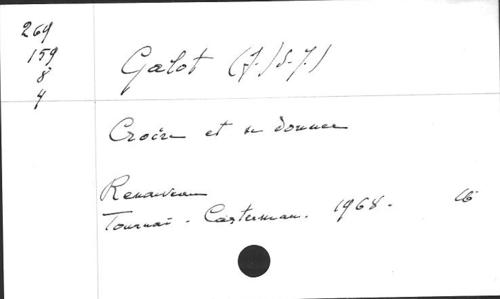 269
159
8
4
Galot (J.) S.J.)
Croire et se donner
Renaveau
Tournai - Casterman. 1968. 16